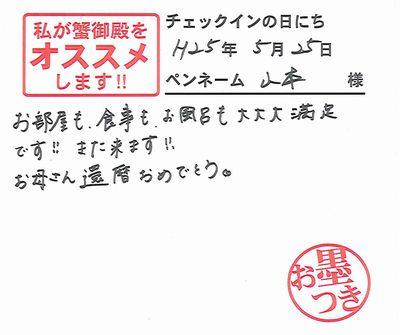 私が蟹御殿を
オススメ
します!!
チェックインの日にち
H25年 5月25日
ペンネーム 山本 様
お部屋も、食事も、お風呂も大大大満足
です!! また来ます!!
お母さん還暦おめでとう。
お墨つき